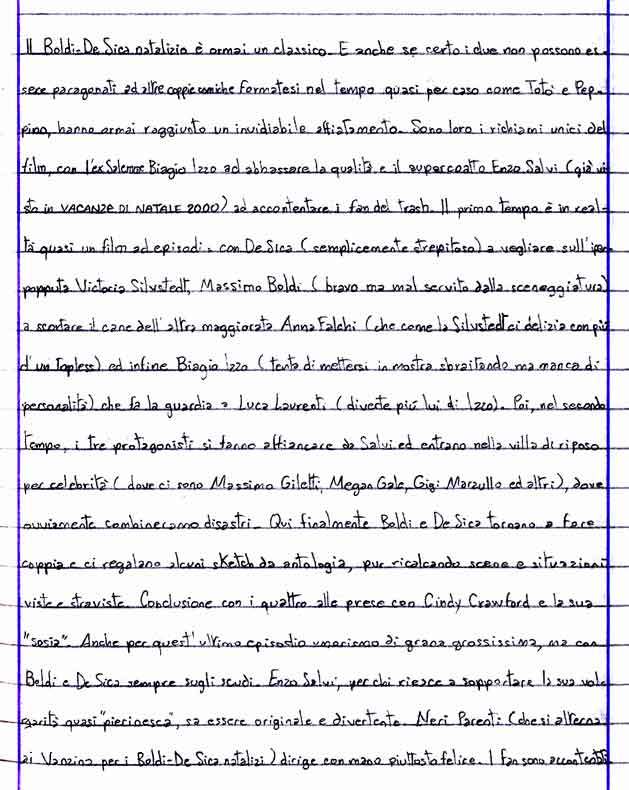 Il Boldi-De Sica natalizio è ormai un classico. E anche se certo i due non possono es-
sere paragonati ad altre coppie comiche formatesi nel tempo quasi per caso come Totò e Pep-
pino, hanno ormai raggiunto un invidiabile affiatamento. Sono loro i richiami unici del
film, con l'ex Salemme Biagio Izzo ad abbassare la qualità e il supercoatto Enzo Salvi (già vi
sto in VACANZE DI NATALE 2000) ad accontentare i fan del trash. Il primo tempo è in real-
tà quasi un film ad episodi, con De Sica (semplicemente strepitoso) a vegliare sull'iper
popputa Victoria Silvstedt, Massimo Boldi (bravo ma mal servito dalla sceneggiatura)
a scortare il cane dell'altra maggiorata Anna Falchi (che come la Silvstedt ci delizia con più
d'un topless) ed infine Biagio Izzo (tenta di mettersi in mostra sbraitando ma manca di
personalità) che fa la guardia a Luca Laurenti (diverte più lui di Izzo). Poi, nel secondo
tempo, i tre protagonisti si fanno affiancare da Salvi ed entrano nella villa di riposo
per celebrità (dove ci sono Massimo Giletti, Megan Gale, Gigi Marzullo ed altri), dove
ovviamente combineranno disastri. Qui finalmente Boldi e De Sica tornano a fare
coppia e ci regalano alcuni sketch da antologia, pur ricalcando scene e situazioni
viste e straviste. Conclusione con i quattro alle prese con Cindy Crawford e la sua
"sosia". Anche per quest'ultimo episodio umorismo di grana grossissima, ma con
Boldi e De Sica sempre sugli scudi. Enzo Salvi, per chi riesce a sopportare la sua vol
garità quasi "pierinesca", sa essere originale e divertente. Neri Parenti (che si alterna
ai Vanzina per i Boldi-De Sica natalizi) dirige con mano piuttosto felice. I fan sono accontentati